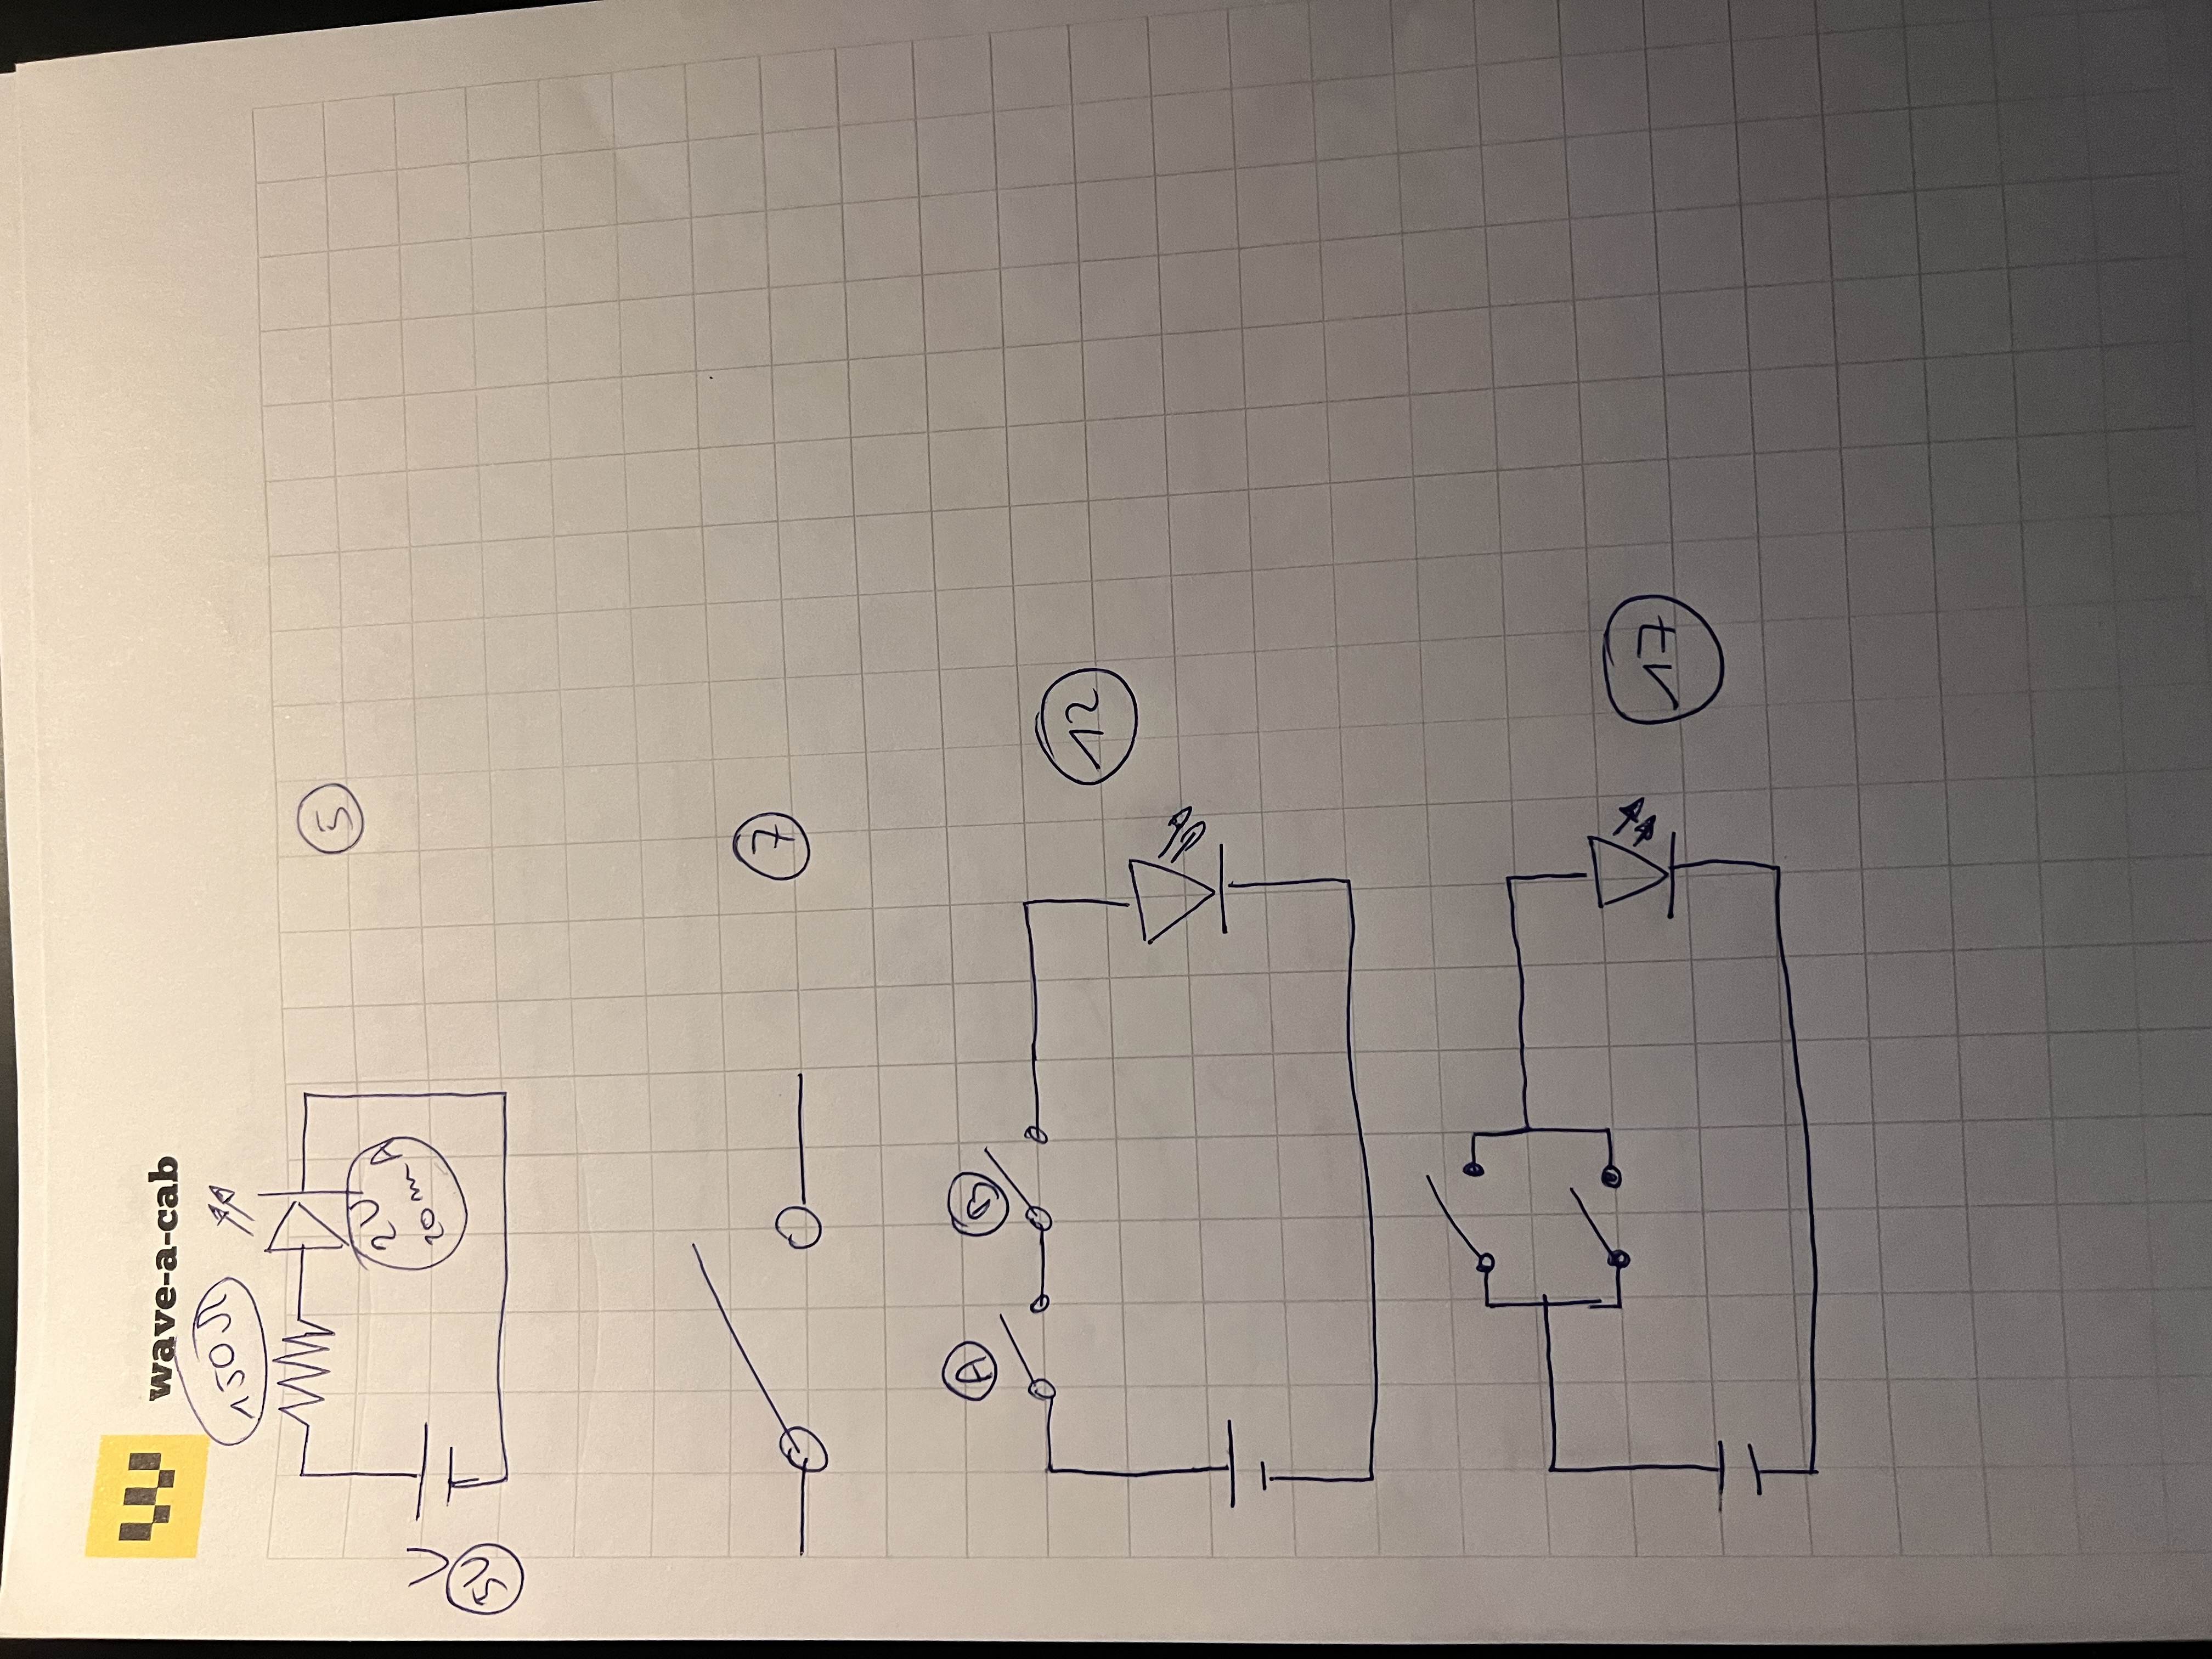 wave-a-cab
150Ω
5
2V
20mA
5V
7
A
B
12
17